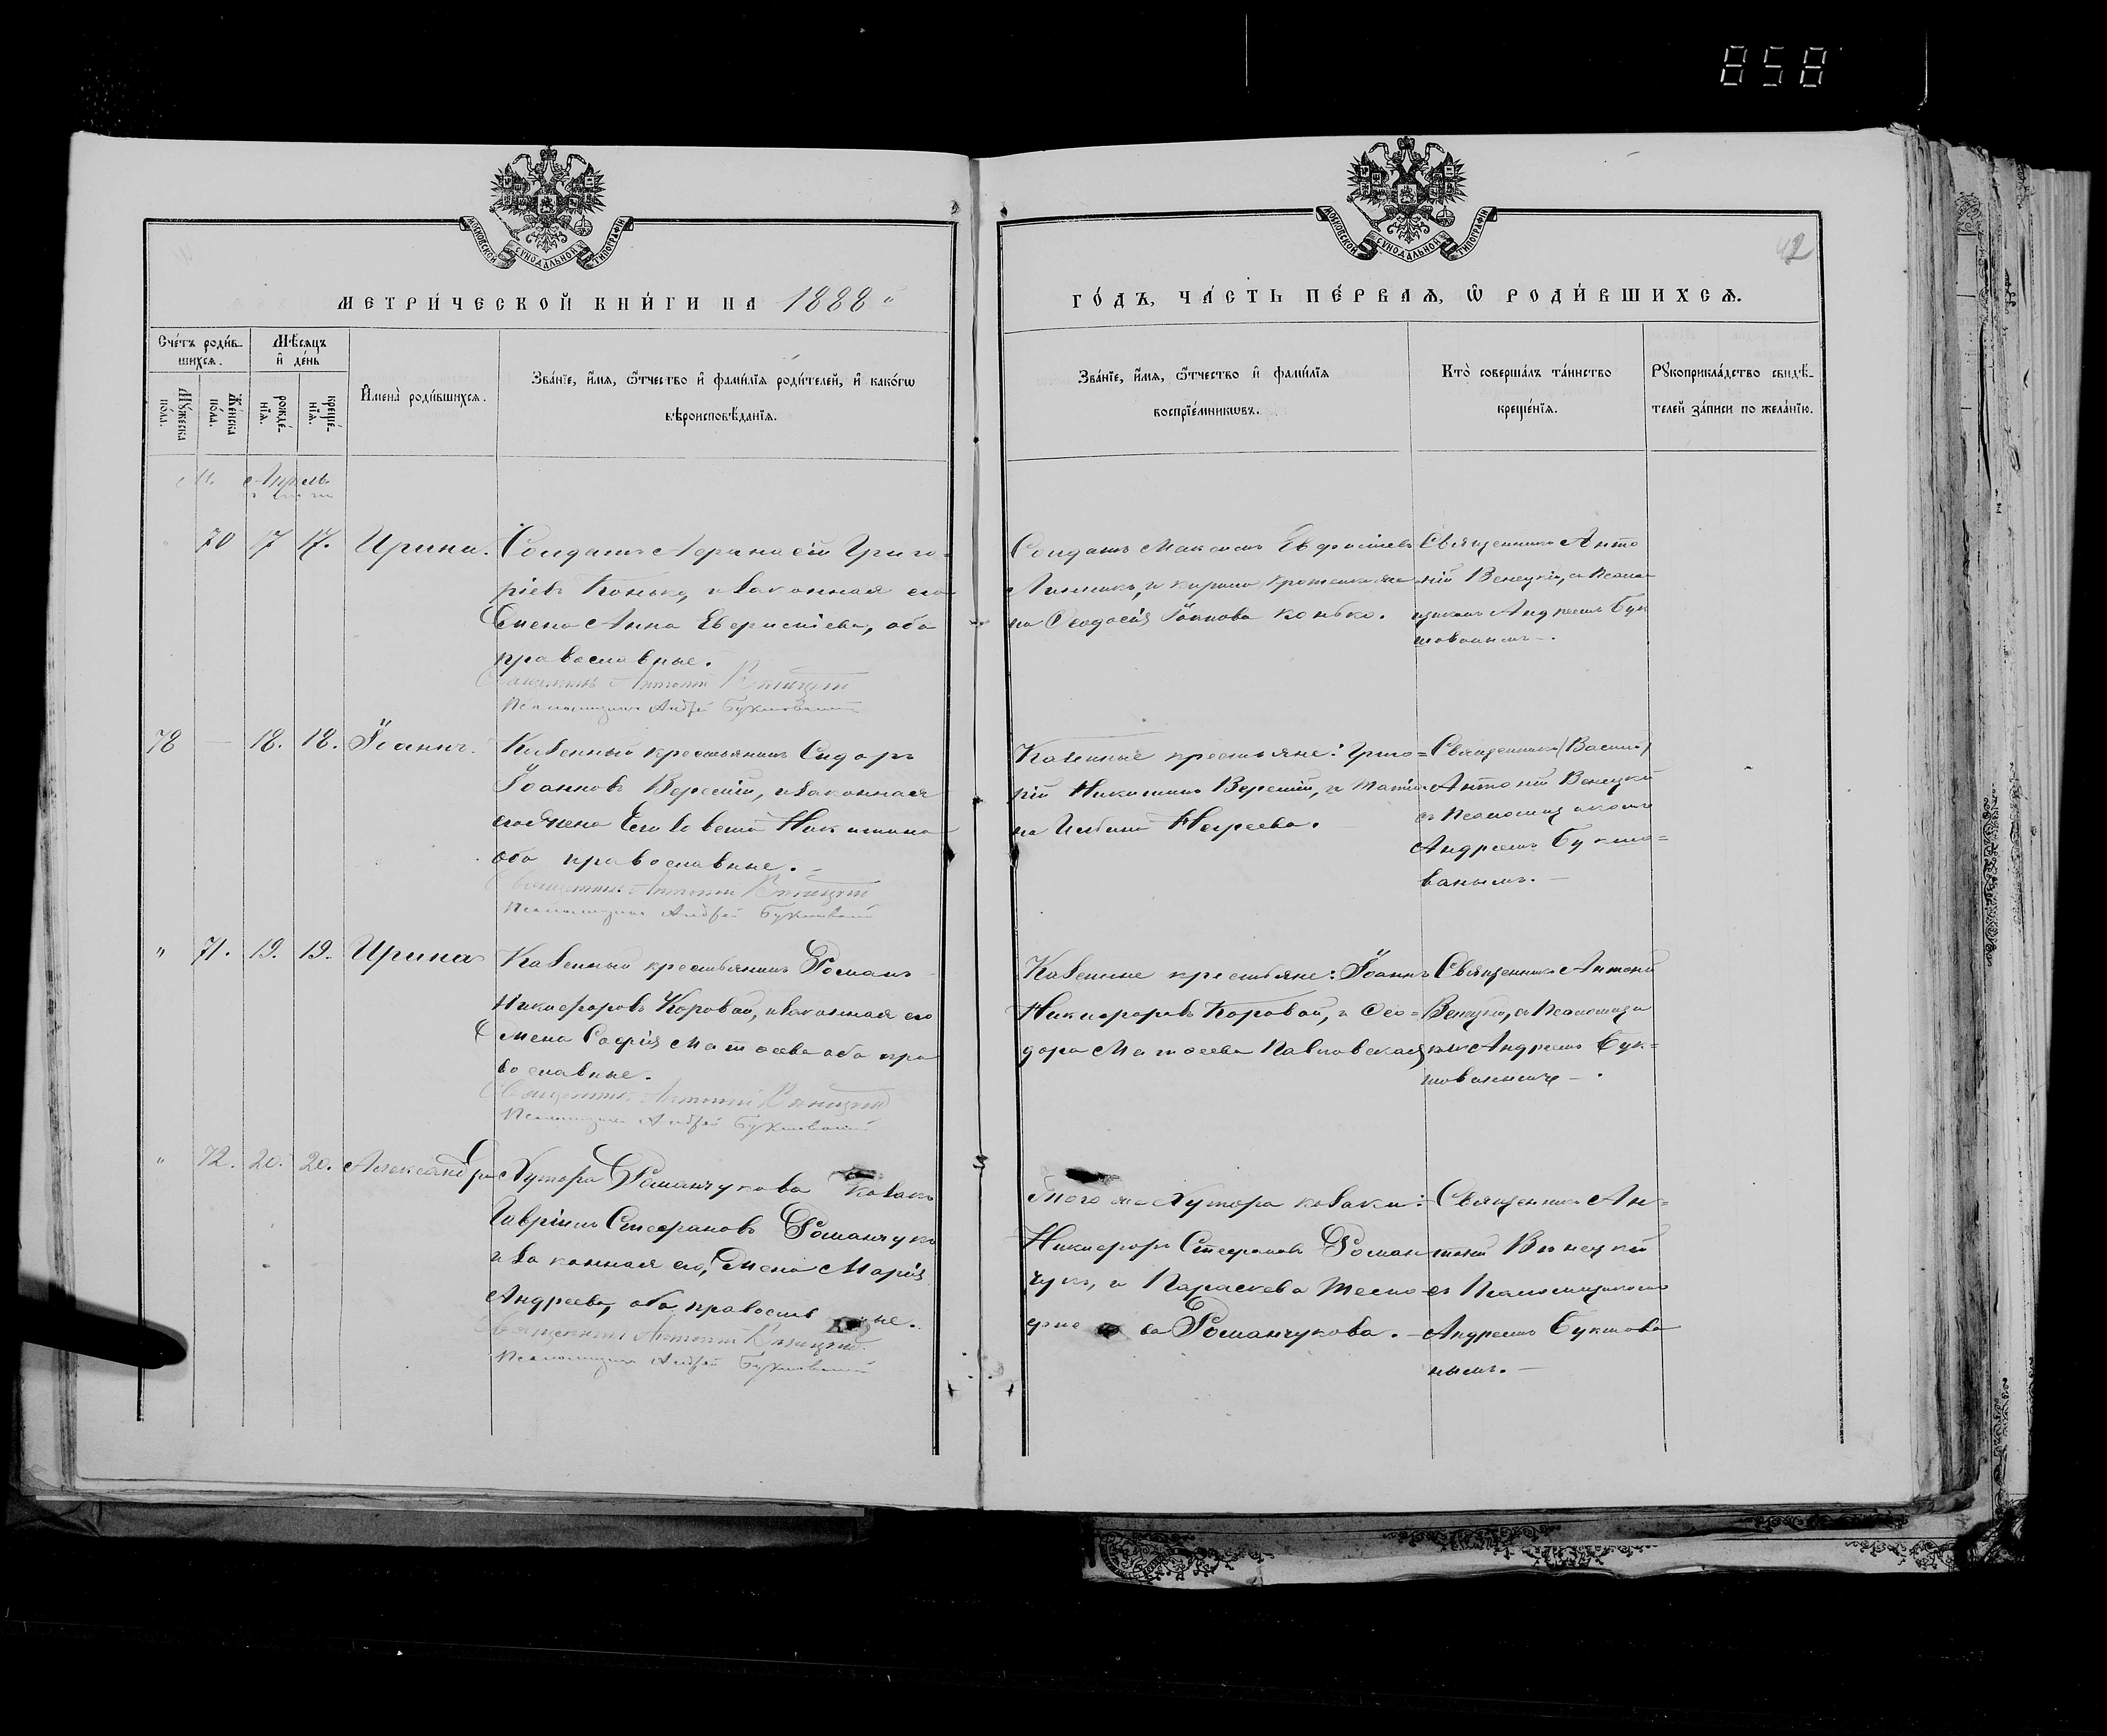 858
МОСКОВСКОЙ СУНОДАЛЬНОЙ ТИПОГРАФІИ
МОСКОВСКОЙ СУНОДАЛЬНОЙ ТИПОГРАФІИ
42
МЕТРИ́ЧЕСКОЙ КНИ́ГИ НА 1888й
ГО́ДЪ, ЧА́СТЬ ПЕ́РВАѦ, Ѡ РОДИ́ВШИХСѦ.
Сче́тъ роди́в-
шихсѧ.
Мѣ́сѧцъ
и҆ де́нь
Мꙋ́жеска
по́ла.
Же́нска
по́ла.
рожде́-
нїѧ.
креще́-
нїѧ.
И҆мена̀ роди́вшихсѧ.
Зва́нїе, и҆́мѧ, ѻ҆́тчество и҆ фамѝлїѧ роди́телей, и҆ како́гѡ
вѣроисповѣ́данїѧ.
Зва́нїе, и҆́мѧ, ѻ҆́тчество и҆ фамѝлїѧ
воспрїе́мникѡвъ.
Кто̀ соверша́лъ та́инство
креще́нїѧ.
Рꙋкоприкла́дство свидѣ́-
телей за́писи по жела́нїю.
Апрель
70 17 17. Ирина.
Солдатъ Афанасій Григо-
ріевъ Конько, и законная его
жена Анна Евфиміева, оба
православные.
Священникъ Антоній Венецкій
Псаломщикъ Андрей Буктованый
Солдатъ Максимъ
на Ѳеодосія Іоаннова Конько.
Священникъ Анто
ній Венецкій, съ Псалом
щикомъ Андреемъ Бук
тованымъ –.
78 – 18. 18. Іоаннъ.
Казенный крестьянинъ Сидоръ
Іоанновъ Вересій, и законная
его жена Никитина
оба православные. –
Священникъ Антоній Венецкій
Псаломщикъ Андрей Буктованый
Казенные крестьяне: Григо=
рій Никитинъ Вересій, и
Священникъ (Васил)
Антоній Венецкій
съ Псаломщикомъ
Андреемъ Букто=
ванымъ. –
" 71. 19. 19. Ирина
Казенный крестьянинъ Романъ
Никифоровъ Коровай, и законная его
жена Софія Матѳеева оба пра
вославные.
Священникъ Антоній Венецкій
Псаломщикъ Андрей Буктованый
Казенные крестьяне: Іоаннъ
Никифоровъ Коровай, и Ѳео=
дора Матѳеева Павловская
Священникъ Антоній
Венецкій, съ Псаломщи
комъ Андреемъ Бук=
тованымъ – .
" 72. 20. 20. Александра
Хутора Романчукова козакъ
Гавріилъ Стефановъ Романчукъ
и законная его, жена Марія
Андреева, оба православные.
Священникъ Антоній Венецкій
Псаломщикъ Андрей Буктованый
Того же Хутора козаки:
Никифоръ Стефановъ Роман
чукъ, и Параскева
ва Романчукова. –
Священникъ Ан=
тоній Венецкій
съ Псаломщикомъ
Андреемъ Буктова
нымъ. –